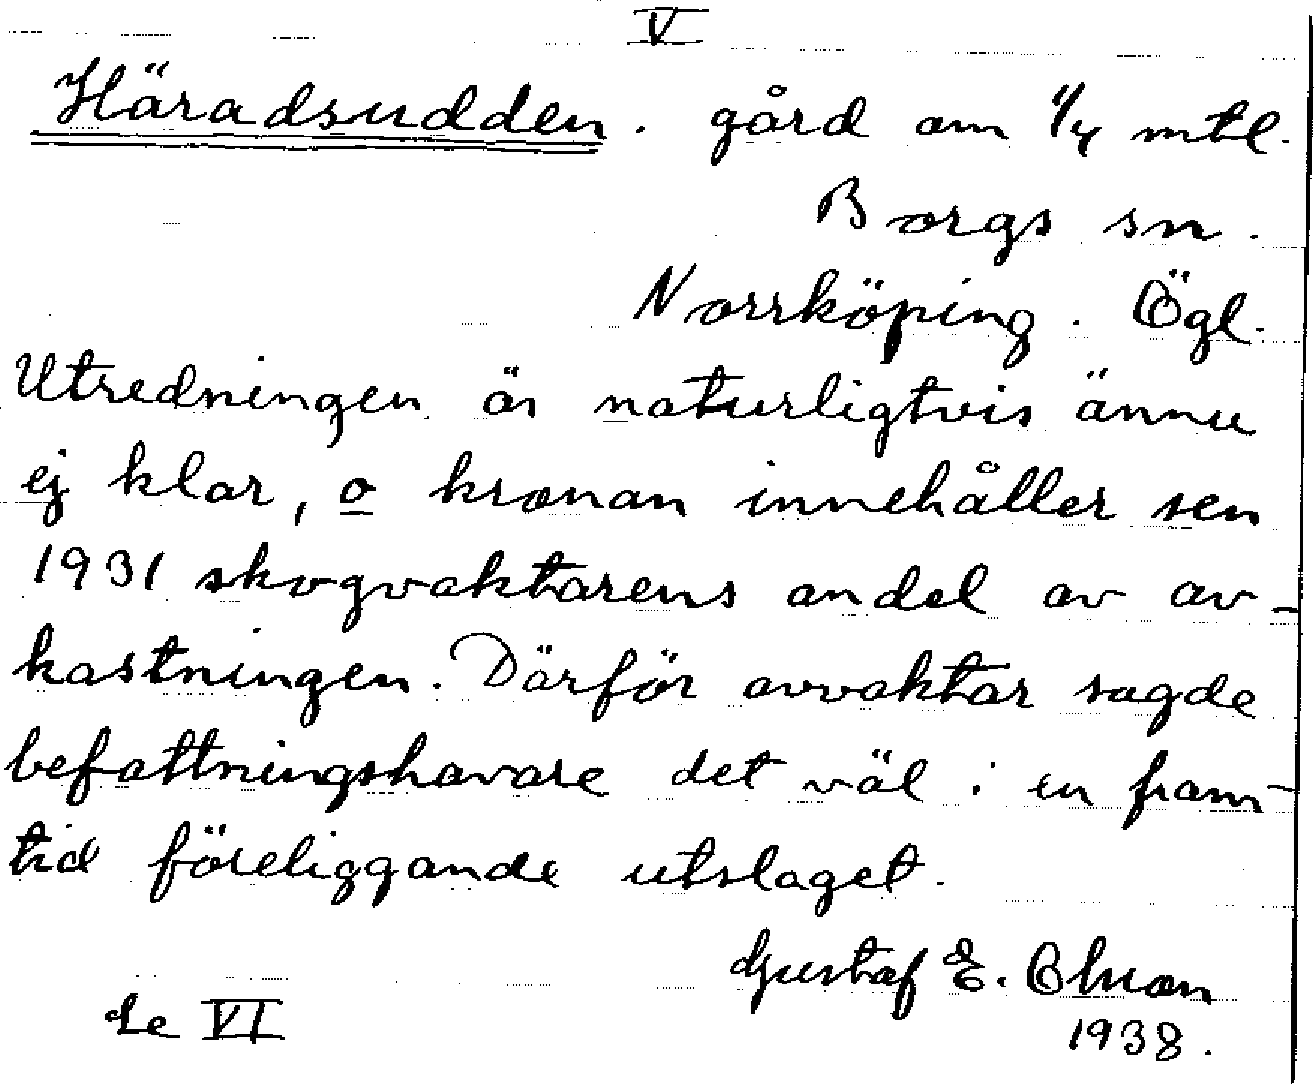 V
Häradsudden. gård om 1/4 mtl.
Borgs sn.
Norrköping. Ögl.
Utredningen är naturligtvis ännu
ej klar, o kronan innehåller sen
1931 skogvaktarens andel av av-
kastningen. Därför avvaktar sagde
befattningshavare det väl i en fram-
tid föreliggande utslaget.
Gustaf E.
1938.
Se VI